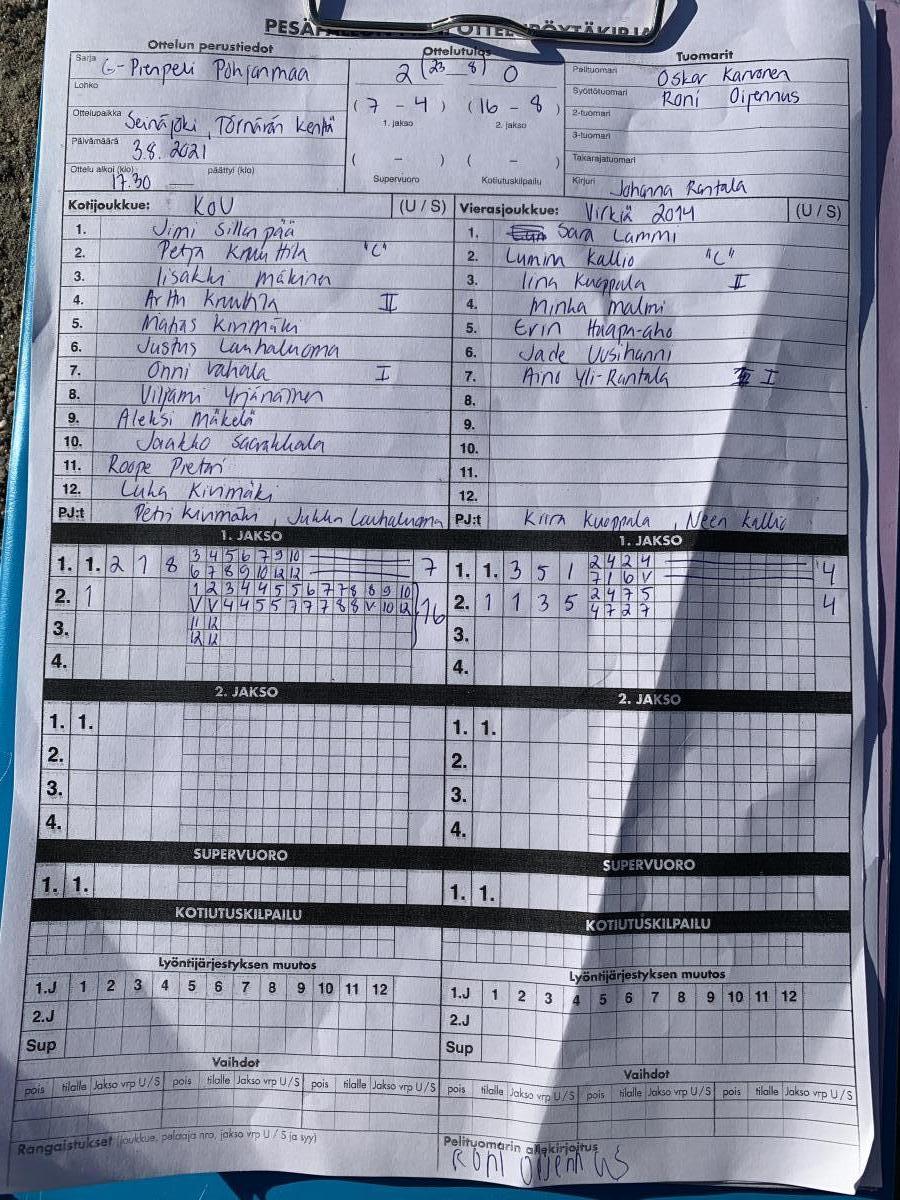 Ottelun perustiedot
Ottelutulos
Tuomarit
Sarja G-Pienpeli Pohjanmaa
2 (23 8) 0
Pelituomari Oskar Karvonen
Lohko
Syöttötuomari Roni Oijennus
(7 - 4) (16 - 8)
2-tuomari
Ottelupaikka Seinäjoki, Törnävän kenttä
1. jakso 2. jakso
3-tuomari
Päivämäärä 3.8. 2021
( - ) ( - )
Takarajatuomari
Ottelu alkoi (klo) päättyi (klo)
17.30
Supervuoro Kotiutuskilpailu
Kirjuri Johanna Rantala
Kotijoukkue: KoU (U / S)
Vierasjoukkue: Virkiä 2014 (U / S)
1. Jimi Sillanpää
1. Sara Lammi
2. Petja Kruuttila "C"
2. Lumia Kallio "C"
3. Iisakki Mäkinen
3. Iina Kuoppala II
4. Arttu II
4. Minka Malmi
5. Matias Kivimäki
5. Erin Haapa-aho
6. Justus Lauhaluoma
6. Jade Uusihanni
7. Onni Vahala I
7. Aino Yli-Rantala I
8. Viljami Yrjänäinen
8.
9. Aleksi Mäkelä
9.
10. Jaakko
10.
11. Roope Pietari
11.
12. Luka Kivimäki
12.
PJ:t Petri Kivimäki, Jukka Lauhaluoma
PJ:t Kiira Kuoppala, Neea Kallio
1. JAKSO
1. JAKSO
1. 1. 2 1 8 3 4 5 6 7 9 10 7
6 7 8 9 10 12 12
1. 1. 3 5 1 2 4 2 4 4
7 1 6 V
2. 1 1 2 3 4 4 5 5 6 7 7 8 8 9 10 16
V V 4 4 5 5 7 7 7 8 8 V 10 12
2. 1 1 3 5 2 4 7 5 4
4 7 2 7
3. 11 12
12 12
3.
4.
4.
2. JAKSO
2. JAKSO
1. 1.
1. 1.
2.
2.
3.
3.
4.
4.
SUPERVUORO
SUPERVUORO
1. 1.
1. 1.
KOTIUTUSKILPAILU
KOTIUTUSKILPAILU
Lyöntijärjestyksen muutos
Lyöntijärjestyksen muutos
1.J 1 2 3 4 5 6 7 8 9 10 11 12
1.J 1 2 3 4 5 6 7 8 9 10 11 12
2.J
2.J
Sup
Sup
Vaihdot
Vaihdot
pois tilalle Jakso vrp U / S pois tilalle Jakso vrp U / S pois tilalle Jakso vrp U / S
pois tilalle Jakso vrp U / S pois tilalle Jakso vrp U / S pois tilalle Jakso vrp U / S
Rangaistukset (joukkue, pelaaja nro, jakso vrp U / S ja syy)
Pelituomarin allekirjoitus
Roni Oijennus